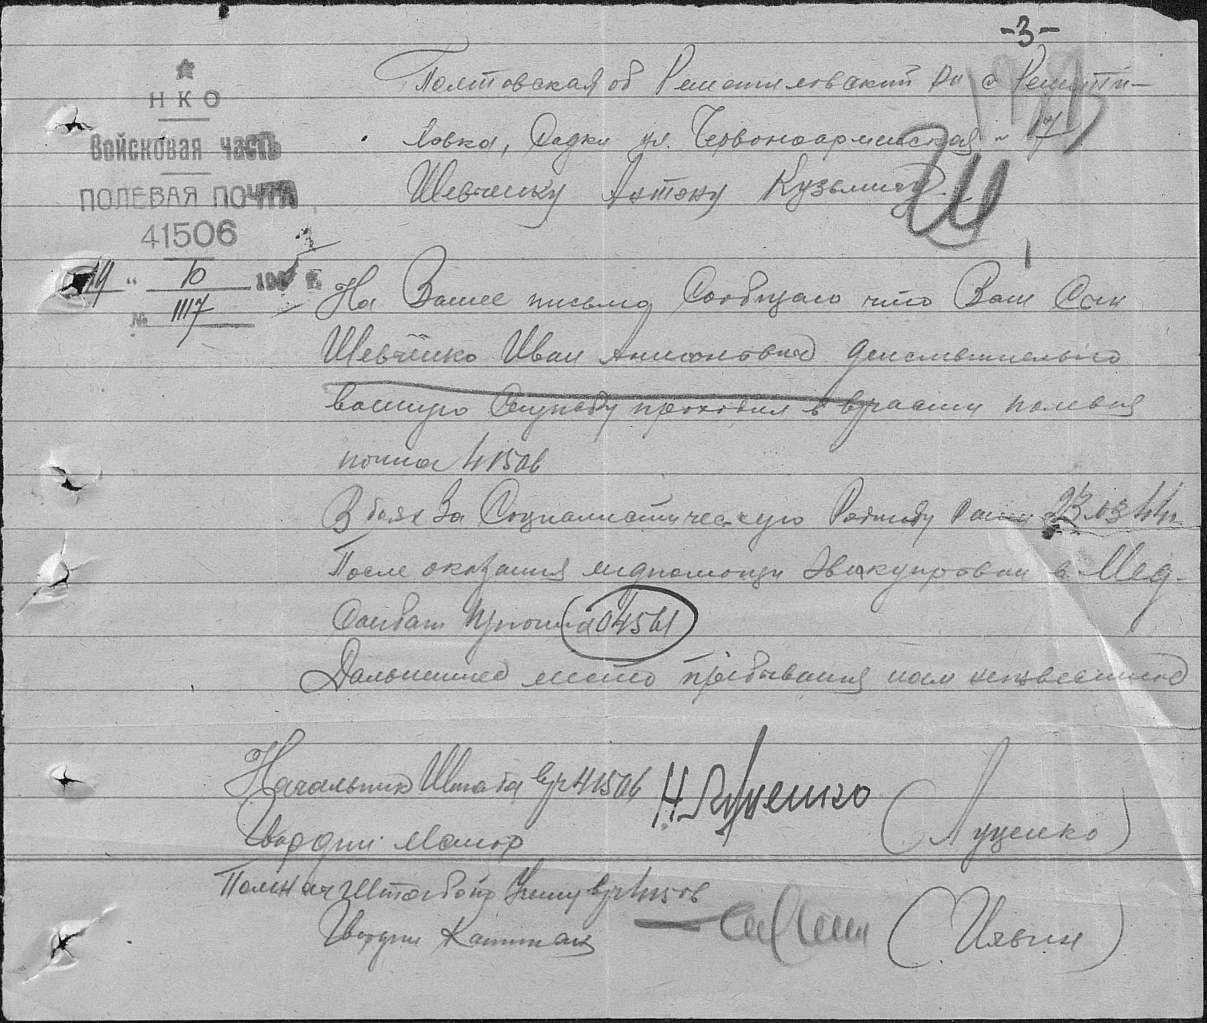 -3-
НКО
Войсковая часть
ПОЛЕВАЯ ПОЧТА
41506
19 " 10 194 г.
№ 1117
Полтовская об Решетиловский рн с Решити-
ловка, Садки ул. Червоноармейская 7
Ш
Шевченку Антону Кузьмичу.
На Ваше письмо Сообщаю что Ваш Сын
Шевченко Иван Антонович действительно
воинскую Службу проходил в в/части полевая
почта 41506
В боях За Социалистическую Родину Ранен 23.03.44г.
После оказания медпомощи Эвакуирован в Мед.
Санбат П/почта 04561
Дальнейшее место пребывания нам неизвестное
Начальник Штаба в/ч 41506 Н. Луценко (Луценко)
Гвардии Маиор
Помнач Штаба по Учету в/ч 41506
Гвардии Капитан (Ильин)